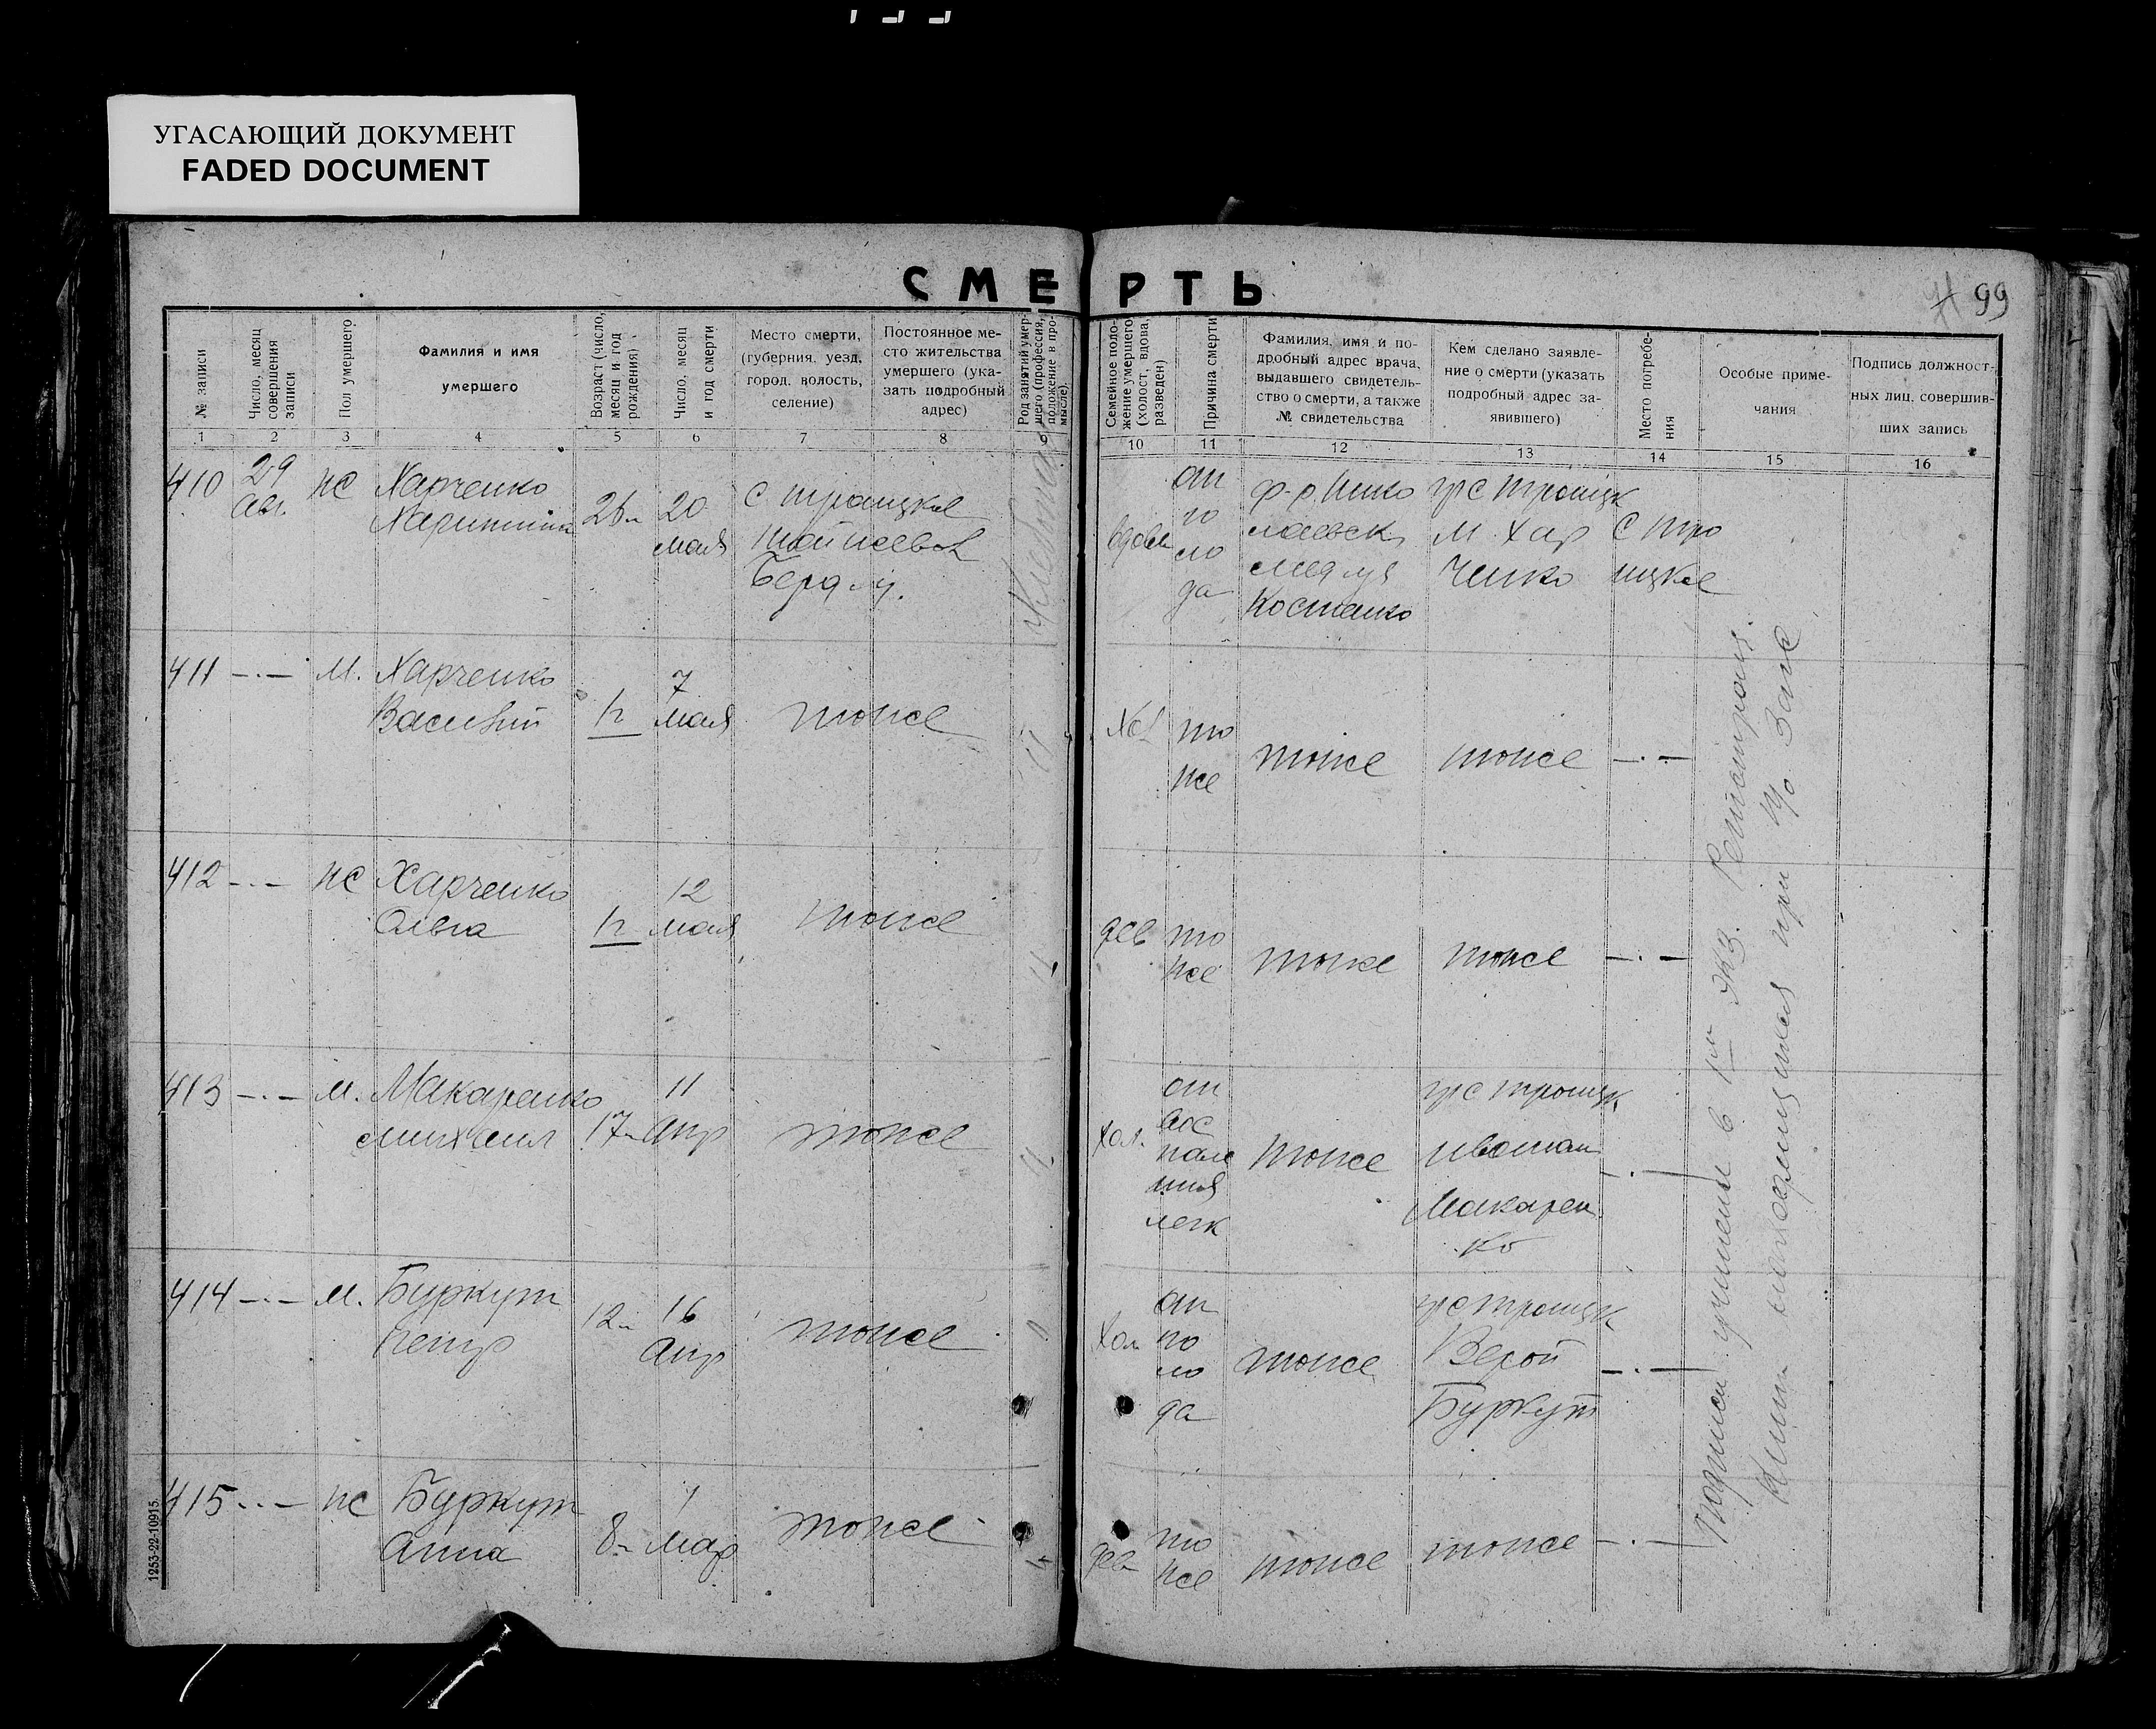 УГАСАЮЩИЙ ДОКУМЕНТ
FADED DOCUMENT
СМЕРТЬ
99
№ записи
Число, месяц совершения записи
Пол умершего
Фамилия и имя
умершего
Возраст (число, месяц и год рождения)
Число, месяц и год смерти
Место смерти,
(губерния, уезд,
город, волость,
селение)
Постоянное ме-
сто жительства
умершего (ука-
зать подробный
адрес)
Род занятий умер-
шего (профессия,
положение в про-
мысле).
Семейное поло-
жение умершего
(холост, вдова,
разведен)
Причина смерти
Фамилия, имя и по-
дробный адрес врача,
выдавшего свидетель-
ство о смерти, а также
№ свидетельства
Кем сделано заявле-
ние о смерти (указать
подробный адрес за-
явившего)
Место погребе-
ния
Особые приме-
чания
Подпись должност-
ных лиц, совершив-
ших запись
1 2 3 4 5 6 7 8 9 10 11 12 13 14 15 16
410 29 авг. ж Харченко
26 л 20 мая
с Троицкое
Берд у.
вдова
от го ло да
Костенко
гр с Троицк
М. Хар
ченко
с Тро
ицкое
411 -·- м. Харченко
Василий
1 г 7 мая тоже
Хол то же тоже тоже -·-
412 -·- ж Харченко
Ольга
1 г 12 мая тоже
дев то же тоже тоже -·-
413 -·- м. Макаренко
Михаил
17 л 11 апр тоже
хол. от вос пале ния легк
тоже
гр с Троицк
Иваном
Макарен
ко
-·-
414 -·- м. Буркут
Петр
12 л 16 апр тоже
хол от го ло да
тоже
гр с Троицк
Верой
Буркут
-·-
415 -·- ж Буркут
Анна
8 л 1 мар тоже
дев то же тоже тоже -·-
Подписи учинены в 1м экз. Регистрац.
Книги находящиеся при
1253-22-10915.